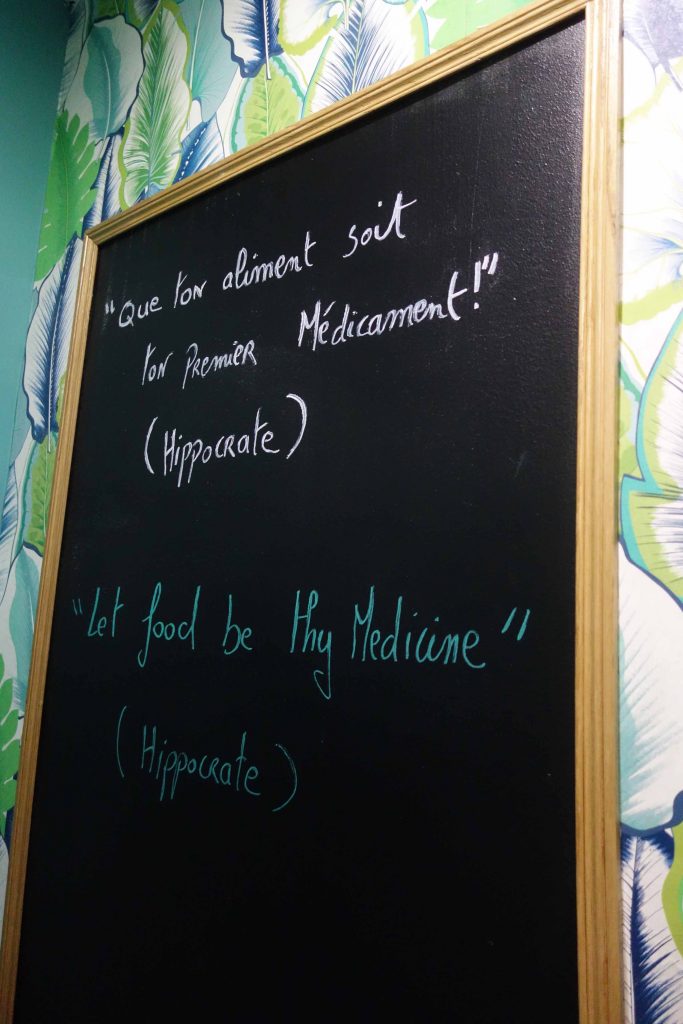 "Que ton aliment soit
ton Premier Médicament!"
(Hippocrate)
"Let food be thy Medicine"
(Hippocrate)